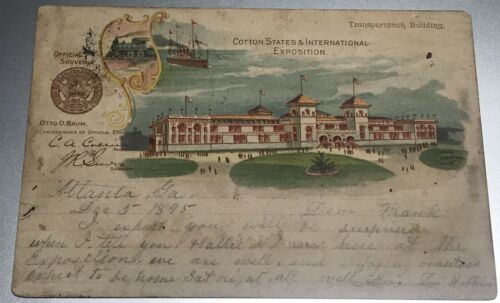 Transportation Building.
COTTON STATES & INTERNATIONAL
EXPOSITION.
OFFICIAL
SOUVENIR
OTTO D. BAUM,
CONCESSIONER OF OFFICIAL
C. A. Collier
Atlanta, Ga.
Dec 5 1895
Dear Frank
I expect you will be surprised
when I tell you Hattie & I are here at the
Exposition. we are well and enjoying ourselves
expect to be home Sat night. all well